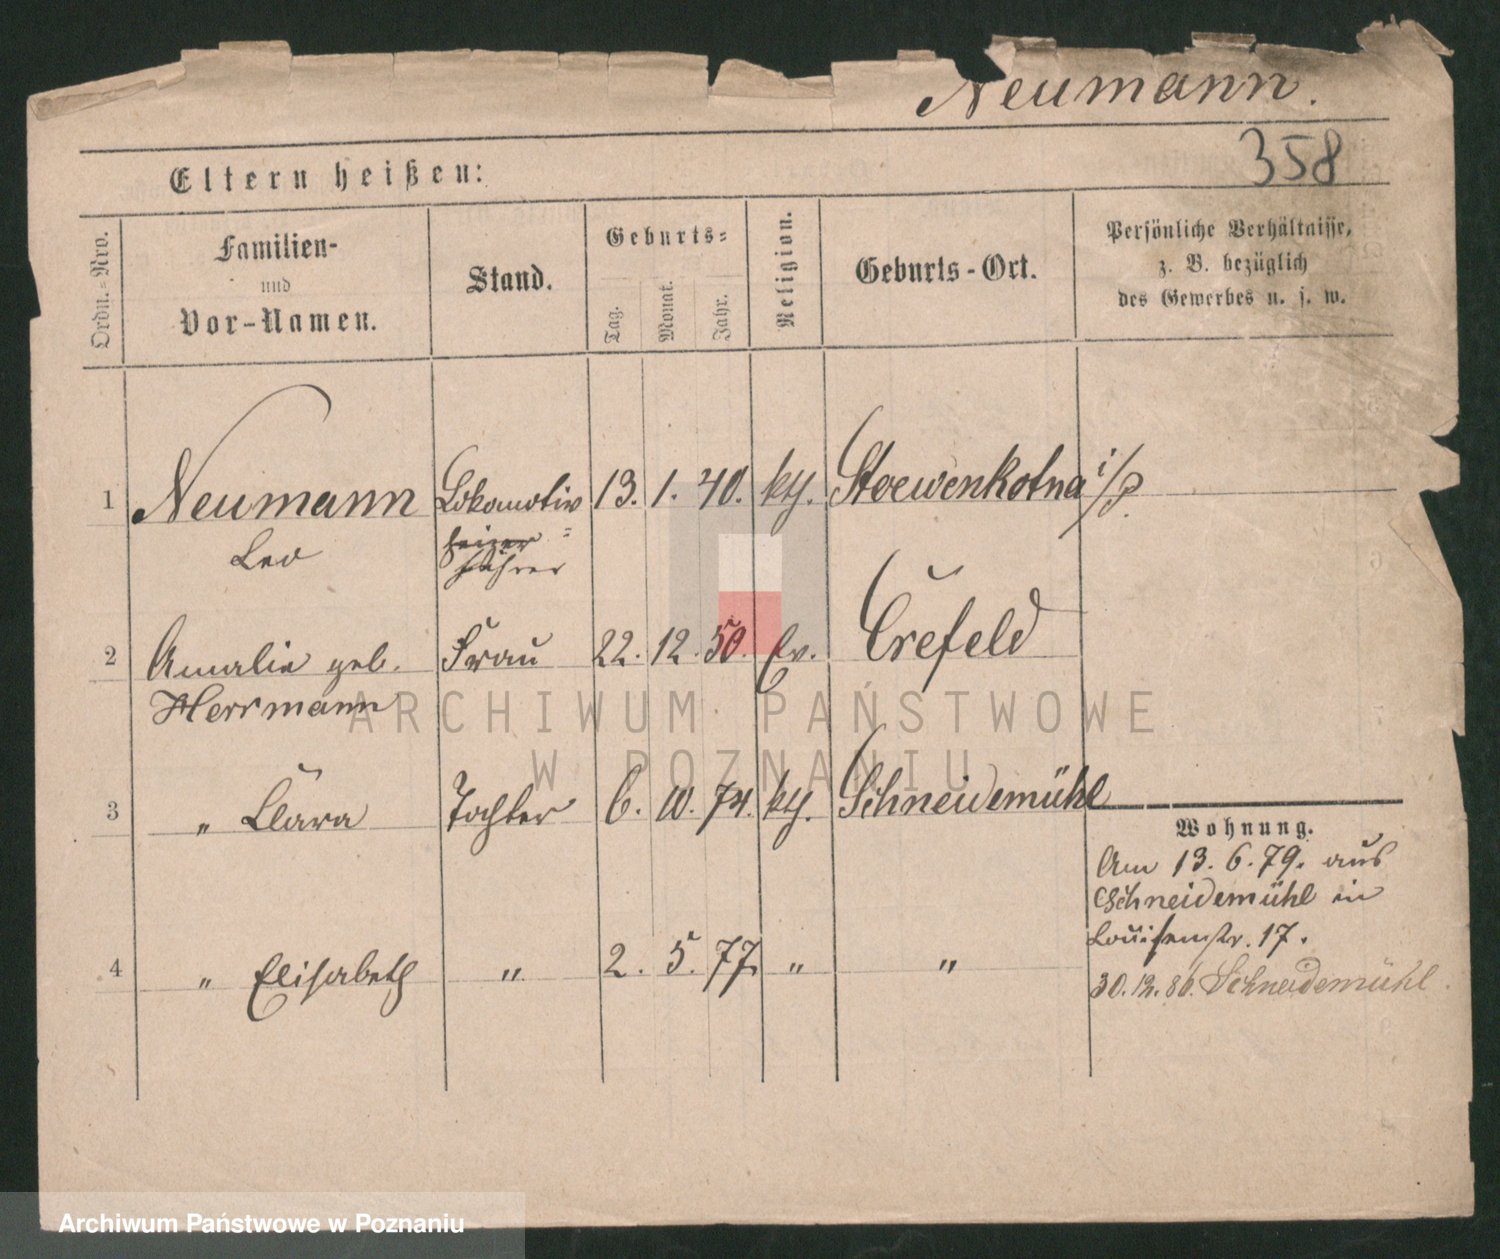 Neumann.
358
Eltern heißen:
Ordn.-Nro.
Familien-
und
Vor-Namen.
Stand.
Geburts-
Tag.
Monat.
Jahr.
Religion.
Geburts-Ort.
Persönliche Verhältnisse,
z. B. bezüglich
des Gewerbes u. s. w.
1 Neumann Lokomotiv 13. 1. 40. kth. Stoewenkotna i/P.
Leo heizer =
führer
2 Amalie geb. Frau 22. 12. 50. Ev. Crefeld
Herrmann
3 " Clara Tochter 6. 10. 74. kth. Schneidemühl
Wohnung.
Am 13. 6. 79. aus
Schneidemühl in
Louisenstr. 17.
4 " Elisabeth " 2. 5. 77. " "
30. 12. 86. Schneidemühl.
ARCHIWUM PAŃSTWOWE
W POZNANIU
Archiwum Państwowe w Poznaniu